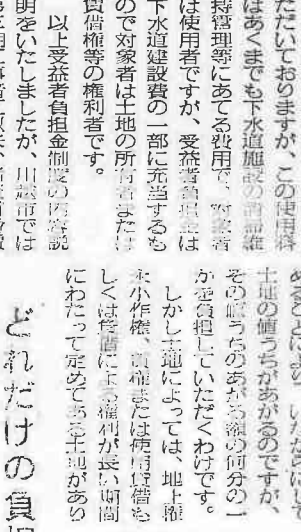 ただいておりますが、この使用料
はあくまでも下水道施設の
持管理等にあてる費用で、対象者
は使用者ですが、受益者負担金は
下水道建設費の一部に充当するも
ので対象者は土地の所有者または
賃借権等の権利者です。
以上受益者負担金制度の内容説
明をいたしましたが、川越市では
土地の値うちがあがるのですが、
その値うちのあがる額の何分の一
かを負担していただくわけです。
しかし土地によっては、地上権
永小作権、質権または使用貸借も
しくは賃借による権利が長い期間
にわたって定めてある土地があり
どれだけの負担